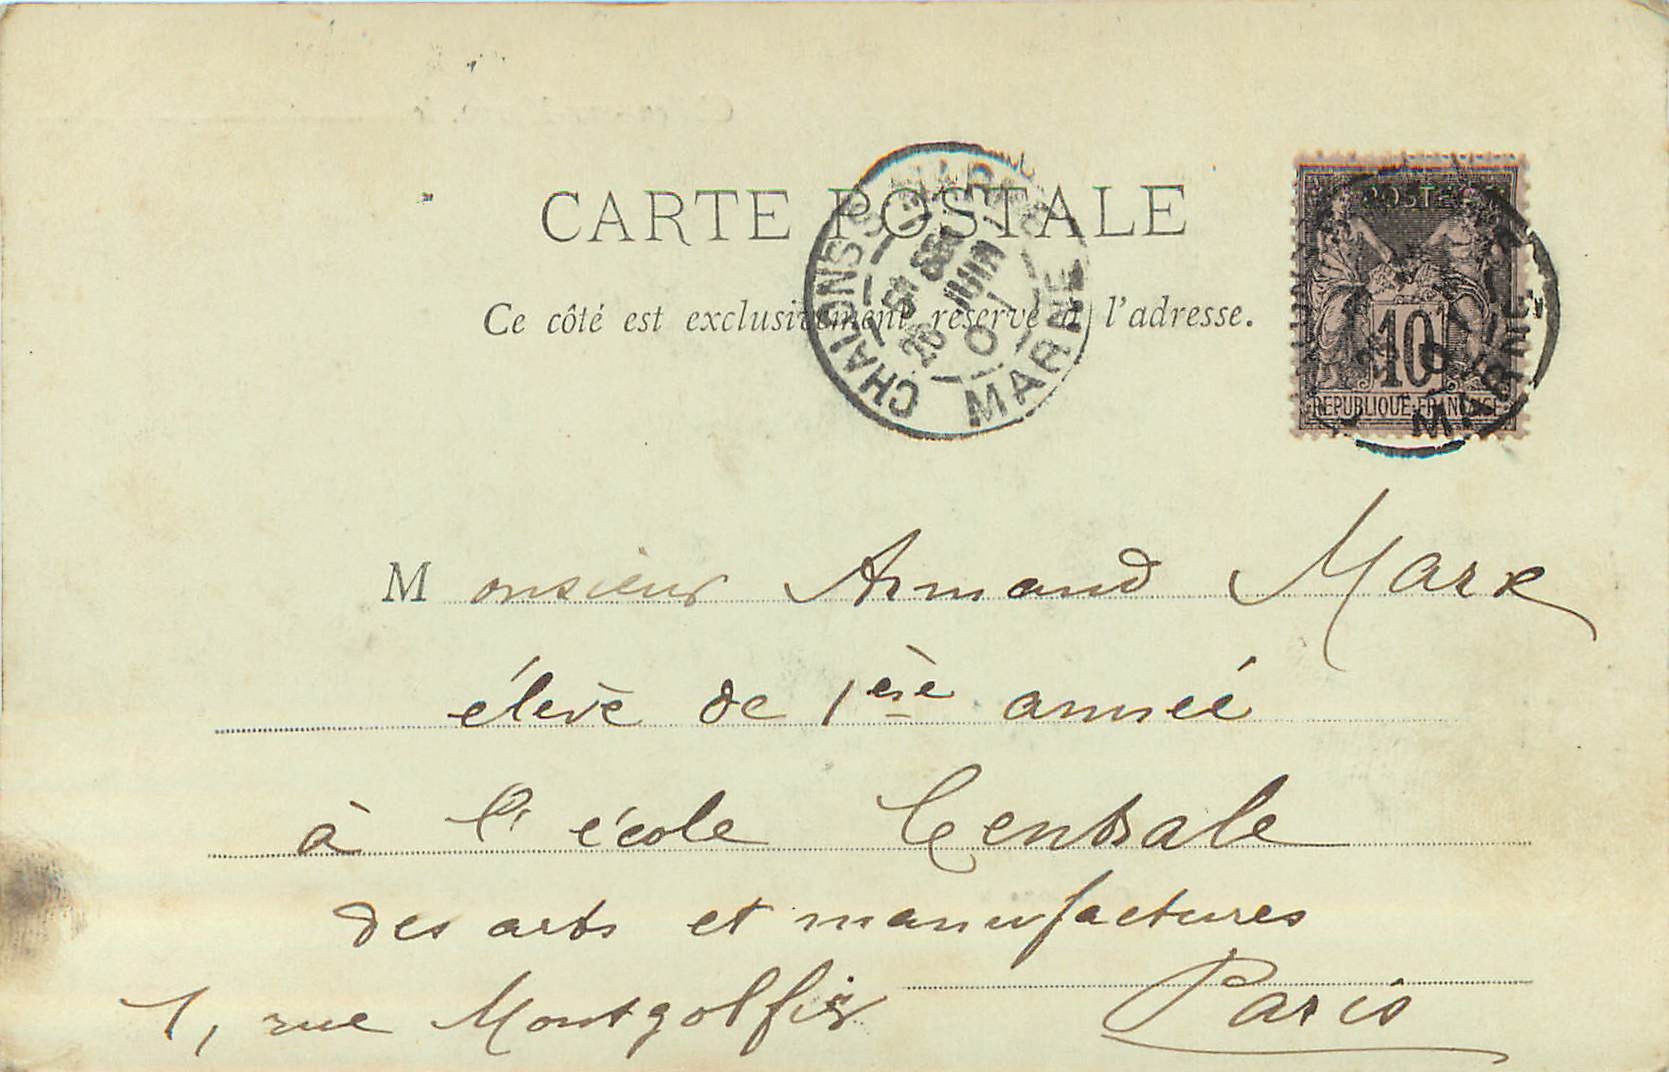 CARTE POSTALE
Ce côté est exclusivement réservé à l'adresse.
CHALONS S MARNE
20 JUIN 01
MARNE
POSTES
10
REPUBLIQUE FRANÇAISE
MARNE
Monsieur Armand Marx
élève de 1ère année
à l'école Centrale
des arts et manufactures
1, rue Montgolfier Paris